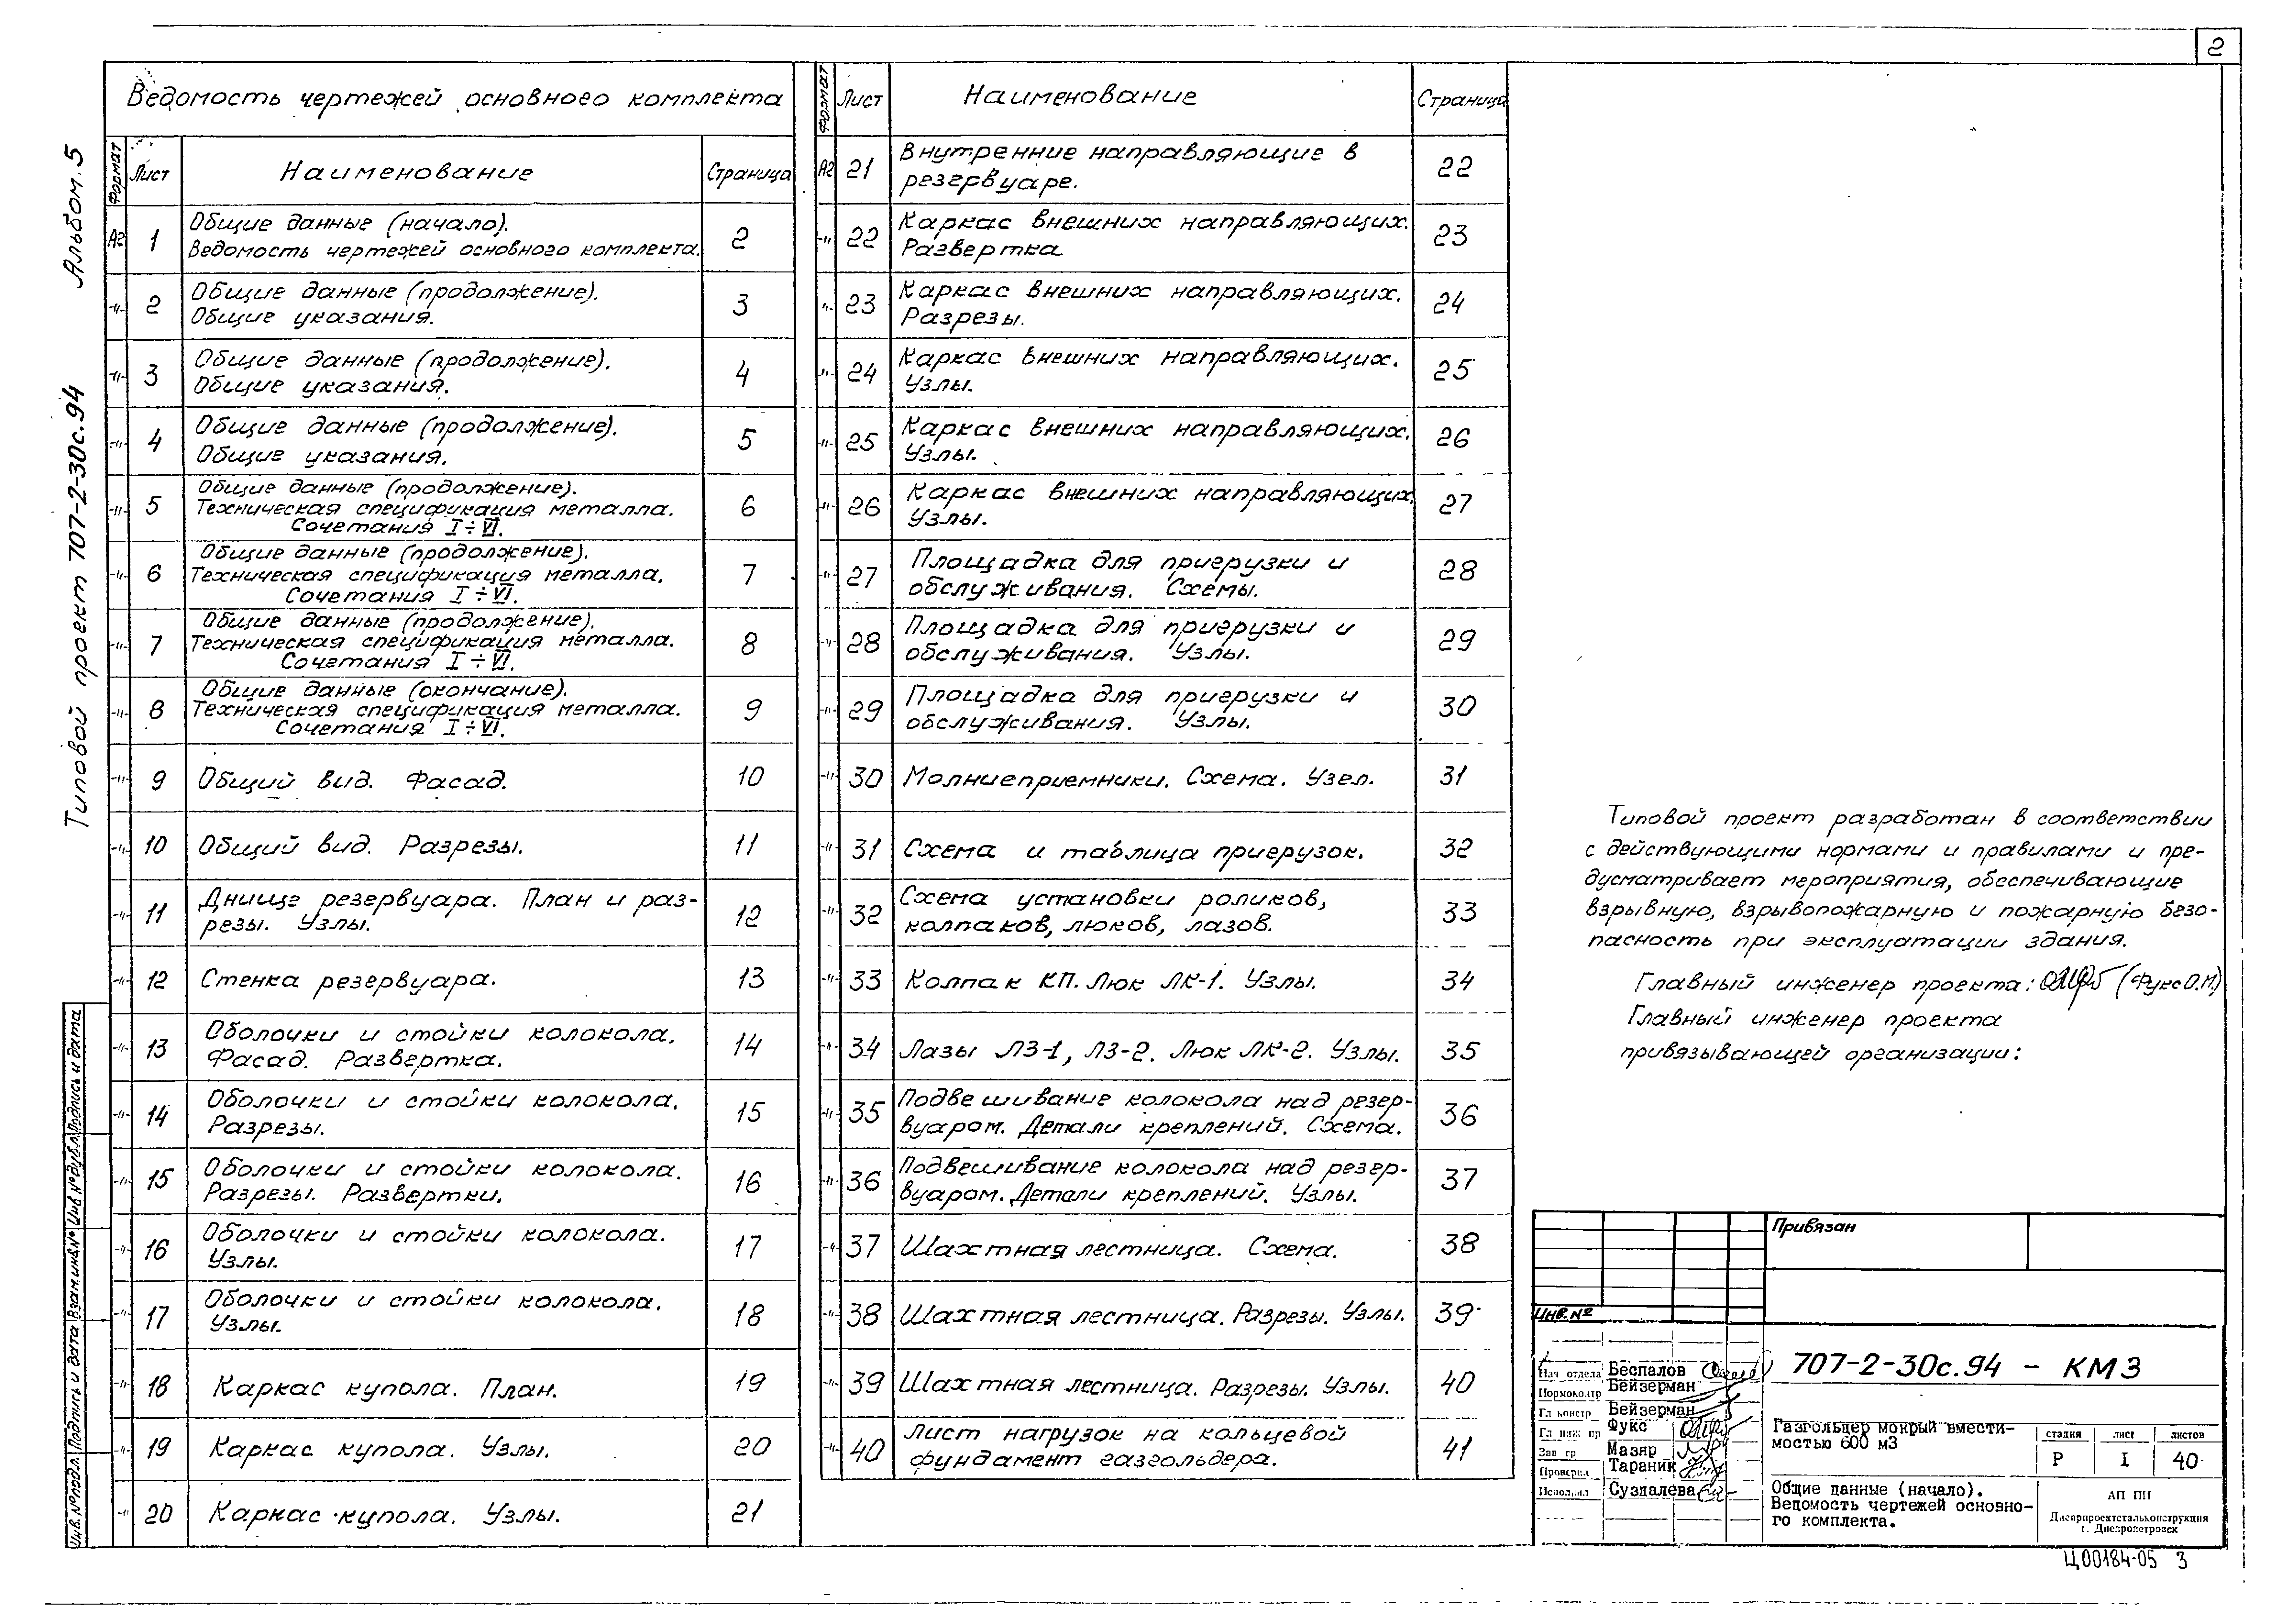 2
Альбом.5
Типовой проект 707-2-30с.94
Ведомость чертежей основного комплекта
Формат Лист Наименование Страница
А2 1 Общие данные (начало). 2
Ведомость чертежей основного комплекта.
-"- 2 Общие данные (продолжение). 3
Общие указания.
-"- 3 Общие данные (продолжение). 4
Общие указания.
-"- 4 Общие данные (продолжение). 5
Общие указания.
-"- 5 Общие данные (продолжение). 6
Техническая спецификация металла.
Сочетания I÷VI.
-"- 6 Общие данные (продолжение). 7
Техническая спецификация металла.
Сочетания I÷VI.
-"- 7 Общие данные (продолжение). 8
Техническая спецификация металла.
Сочетания I÷VI.
-"- 8 Общие данные (окончание). 9
Техническая спецификация металла.
Сочетания I÷VI.
-"- 9 Общий вид. Фасад. 10
-"- 10 Общий вид. Разрезы. 11
-"- 11 Днище резервуара. План и раз- 12
резы. Узлы.
-"- 12 Стенка резервуара. 13
-"- 13 Оболочки и стойки колокола. 14
Фасад. Развертка.
-"- 14 Оболочки и стойки колокола. 15
Разрезы.
-"- 15 Оболочки и стойки колокола. 16
Разрезы. Развертки.
-"- 16 Оболочки и стойки колокола. 17
Узлы.
-"- 17 Оболочки и стойки колокола. 18
Узлы.
-"- 18 Каркас купола. План. 19
-"- 19 Каркас купола. Узлы. 20
-"- 20 Каркас купола. Узлы. 21
Формат Лист Наименование Страница
А2 21 Внутренние направляющие в 22
резервуаре.
-"- 22 Каркас внешних направляющих. 23
Развертка
-"- 23 Каркас внешних направляющих. 24
Разрезы.
-"- 24 Каркас внешних направляющих. 25
Узлы.
-"- 25 Каркас внешних направляющих. 26
Узлы.
-"- 26 Каркас внешних направляющих. 27
Узлы.
-"- 27 Площадка для пригрузки и 28
обслуживания. Схемы.
-"- 28 Площадка для пригрузки и 29
обслуживания. Узлы.
-"- 29 Площадка для пригрузки и 30
обслуживания. Узлы.
-"- 30 Молниеприемники. Схема. Узел. 31
-"- 31 Схема и таблица пригрузок. 32
-"- 32 Схема установки роликов, 33
колпаков, люков, лазов.
-"- 33 Колпак КП. Люк ЛК-1. Узлы. 34
-"- 34 Лазы ЛЗ-1, ЛЗ-2. Люк ЛК-2. Узлы. 35
-"- 35 Подвешивание колокола над резер- 36
вуаром. Детали креплений. Схема.
-"- 36 Подвешивание колокола над резер- 37
вуаром. Детали креплений. Узлы.
-"- 37 Шахтная лестница. Схема. 38
-"- 38 Шахтная лестница. Разрезы. Узлы. 39
-"- 39 Шахтная лестница. Разрезы. Узлы. 40
-"- 40 Лист нагрузок на кольцевой 41
фундамент газгольдера.
Типовой проект разработан в соответствии
с действующими нормами и правилами и пре-
дусматривает мероприятия, обеспечивающие
взрывную, взрывопожарную и пожарную безо-
пасность при эксплуатации здания.
Главный инженер проекта: (Фукс О.М.)
Главный инженер проекта
привязывающей организации:
Привязан
Инв. №
Нач отдела Беспалов
Нормоконтр Бейзерман
Гл констр Бейзерман
Гл инж пр Фукс
Зав гр Мазяр
Проверил Тараник
Исполнил Суздалева
707-2-30с.94 - КМ3
Газгольдер мокрый вмести-
мостью 600 м3
стадия лист листов
Р I 40
Общие данные (начало).
Ведомость чертежей основно-
го комплекта.
АП ПИ
Днепрпроектстальконструкция
г. Днепропетровск
Ц00184-05 3
Инв.№подл. Подпись и дата Взам.инв.№ Инв №дубл. Подпись и дата